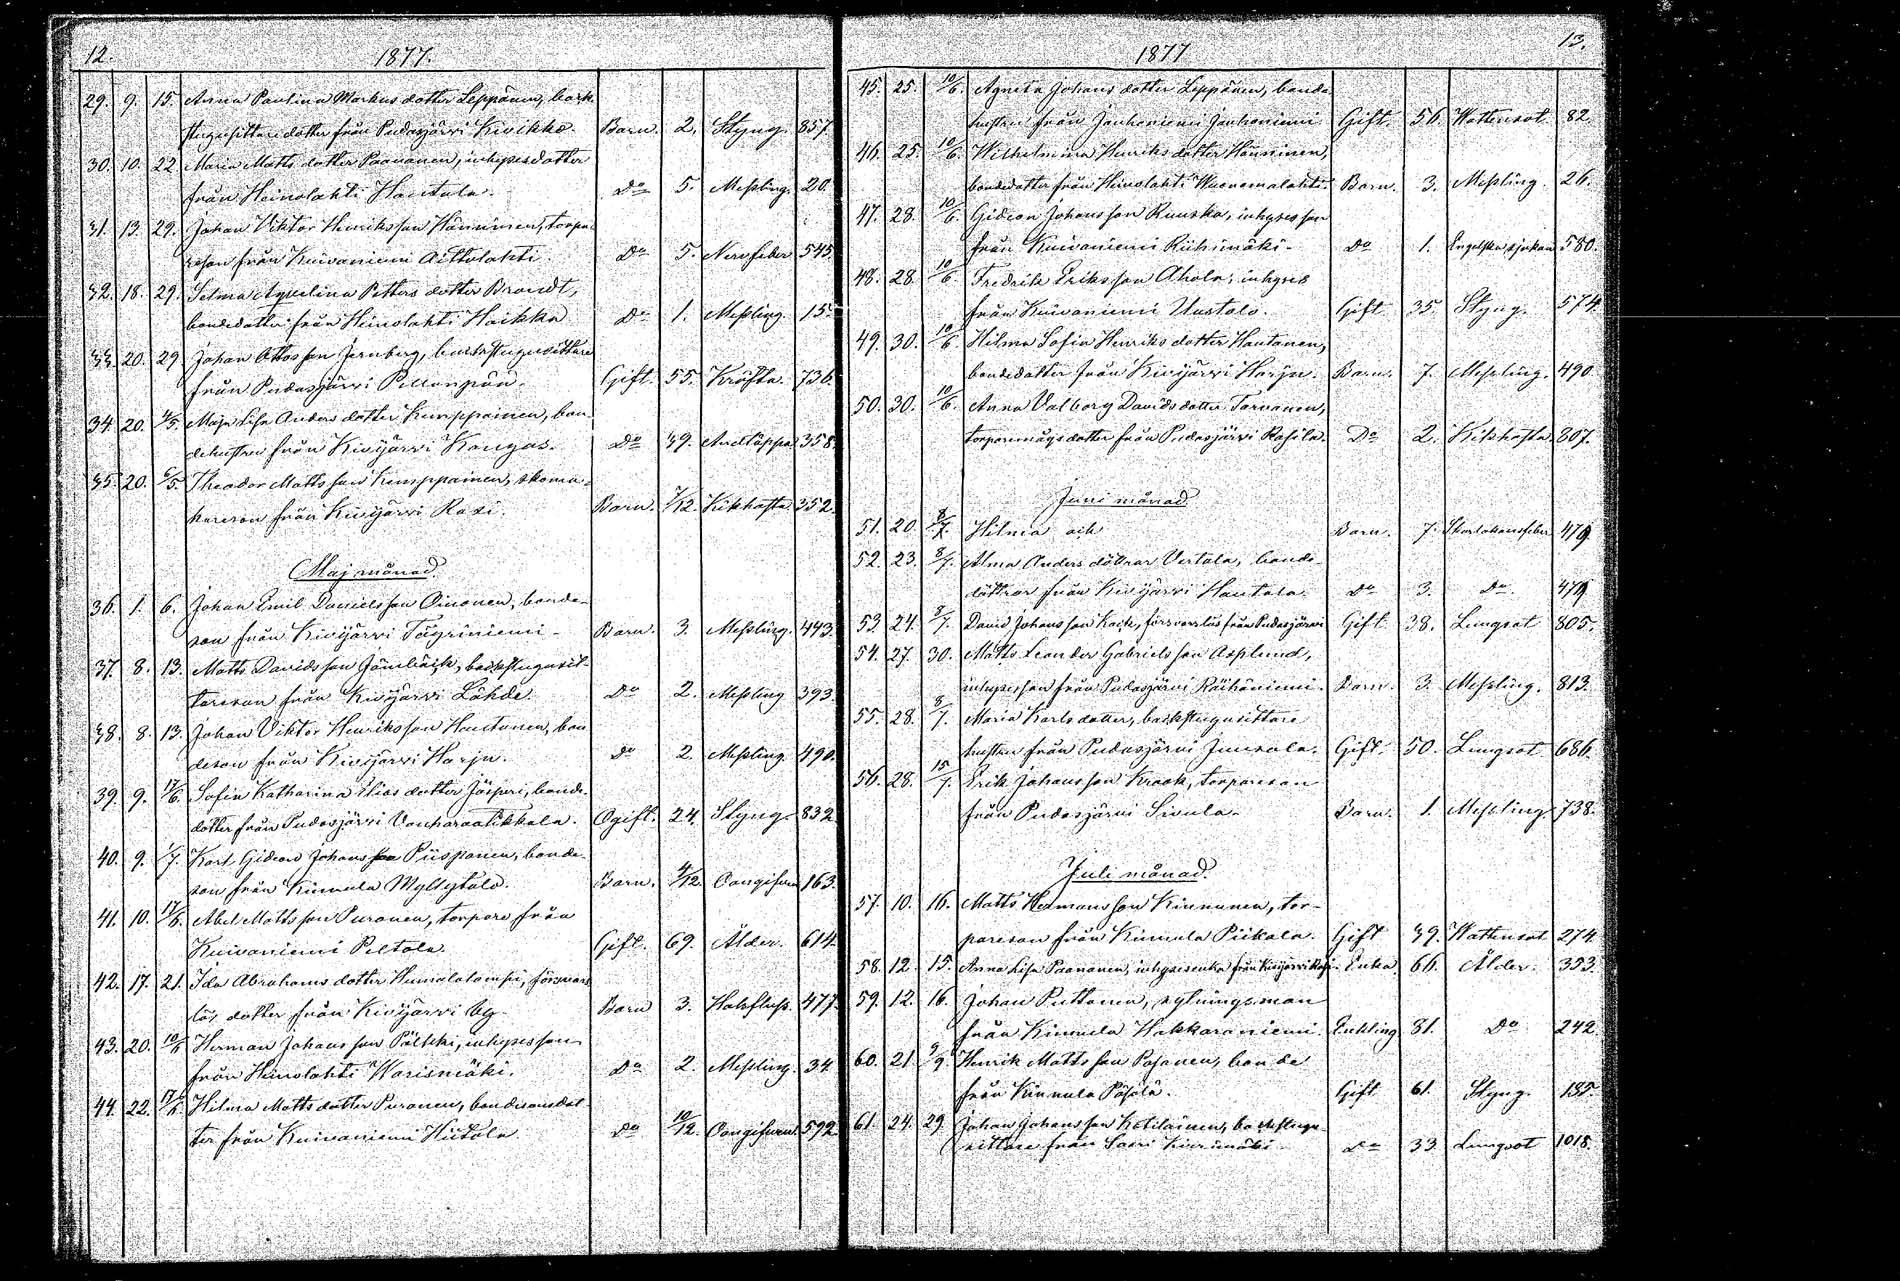 12. 1877.
29. 9. 15. Anna Paulina Markus dotter Leppänen, back-
stugusittaredotter från Pudasjärvi Kivikko. Barn. 2. Styng. 857.
30. 10. 22 Maria Matts dotter Paananen, inhysesdotter
från Heinolahti Hautala. Do 5. Messling. 20.
31. 13. 29. Johan Viktor Henriksson Hänninen, torpa-
reson från Kuivaniemi Aittolahti Do 5. Nervfeber 545.
32. 18. 29. Selma Aqvilina Petters dotter Brandt,
bondedotter från Heinolahti Haikka Do 1. Messling. 15.
33. 20. 29 Johan Ottosson Jernberg, backstugusittare
från Pudasjärvi Pellonpää. Gift. 55. Kräfta. 736.
34. 20. 4/5. Maja Lisa Anders dotter Kumppainen, bon-
dehustru från Kivijärvi Kangas. Do 39. Andtäppa 358.
35. 20. 6/5. Theodor Mattsson Kumppainen, skoma-
kareson från Kivijärvi Rasi. Barn. 7/12. Kikhosta 352.
Maj månad.
36. 1. 6. Johan Emil Danielsson Oinonen, bonde-
son från Kivijärvi Tägriniemi. Barn. 3. Messling. 443.
37. 8. 13. Matts Davidsson Jämbäck, backstugusit-
tareson från Kivijärvi Lähde. Do 2. Messling 393.
38. 8. 13. Johan Viktor Henriksson Hautanen, bon-
deson från Kivijärvi Harju. do 2. Messling 490.
39. 9. 17/6. Sofia Katharina Elias dotter Jäsperi, bonde-
dotter från Pudasjärvi Vanharaatikkala. Ogift. 24. Styng. 832.
40. 9. 1/7. Karl Gideon Johansson Piispanen, bonde-
son från Kinnula Myllytalo. Barn. 4/12. Oangifven 163.
41. 10. 17/6. Abel Mattsson Puranen, torpare från
Kuivaniemi Peltola. Gift. 69. Ålder. 614.
42. 17. 21. Ida Abrahams dotter Hennalalampi, försvars-
lös dotter från Kivijärvi by. Barn 3. Halsfluss. 477.
43. 20. 10/6 Herman Johansson Pölkki, inhysesson
från Heinolahti Warismäki. Do 2. Messling. 34
44. 22. 17/6. Hilma Matts dotter Puranen, bondesonsdot-
ter från Kuivaniemi Hiitola do 10/12. Oangifven. 592
1877 13.
45. 25. 10/6. Agneta Johans dotter Leppänen, bonde-
hustru från Jauhoniemi Jauhoniemi Gift. 56. Wattensot. 82.
46. 25. 10/6. Wilhelmina Henriks dotter Hänninen,
bondedotter från Heinolahti Wuorenmalahti. Barn. 3. Messling. 26.
47. 28. 10/6. Gideon Johansson Ruuska, inhysesson
från Kuivaniemi Riihimäki. do 1. Engelska sjukan 580.
48. 28. 10/6. Fredrik Eriksson Ahola, inhyses
från Kuivaniemi Uustalo. Gift 35 Styng. 574
49. 30. 10/6. Hilma Sofia Henriks dotter Hautanen,
bondedotter från Kivijärvi Harju. Barn. 7. Messling. 490.
50. 30. 10/6. Anna Valborg Davids dotter Tarvanen,
torparemågsdotter från Pudasjärvi Rasila. Do 2. Kikhosta. 807.
Juni månad.
51. 20. 8/7. Hilma och Barn. 7. Skarlakansfeber 479.
52. 23. 8/7. Alma Anders döttrar Vertala, bonde-
döttrar från Kivijärvi Hautala. do 3. Do. 479
53. 24. 8/7. David Johansson Kack, försvarslös från Pudasjärvi Gift. 38. Lungsot 805.
54. 27. 30. Matts Leander Gabrielsson Asplund,
inhysesson från Pudasjärvi Räihäniemi. Barn. 3. Messling. 813.
55. 28. 8/7. Maria Karlsdotter, backstugusittare
hustru från Pudasjärvi Jussala. Gift. 50. Lungsot. 686.
56. 28. 15/7. Erik Johansson Kraak, torpareson
från Pudasjärvi Sivula. Barn. 1. Messling. 738.
Juli månad.
57. 10. 16. Matts Hermansson Kinnunen, tor-
pareson från Kinnula Piikala. Gift 39. Wattensot 274.
58. 12. 15. Anna Lisa Paananen, inhysesenka från Kivijärvi Rasi. Enka. 66. Ålder. 353.
59. 12. 16. Johan Puttonen, sytningsman
från Kinnula Hakkaraniemi. Enkling 81. Do 242.
60. 21. 9/9. Henrik Mattsson Pasanen, bonde
från Kinnula Pasala. Gift 61. Styng. 185.
61. 24. 29. Johan Johansson Kotilainen, backstugu-
sittare från Saari Kiurimäki. do 33. Lungsot 1018.